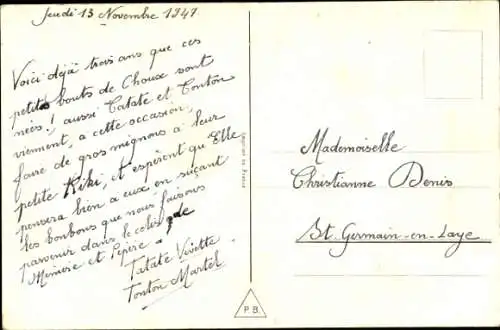 Jeudi 13 Novembre 1947
Voici déjà trois ans que ces
petits bouts de Choux sont
nées! aussi Tatate et Tonton
viennent, a cette occasion,
faire de gros mignons a leur
petite Kiki, et espèrent qu'Elle
pensera bien a eux en suçant
les bonbons que nous faisons
parvenir dans le colis de
Mémère et Pépère.
Tatate Vivette
Tonton Martel
Imprimé en France
P.B.
Mademoiselle
Christianne Denis
St. Germain-en-Laye